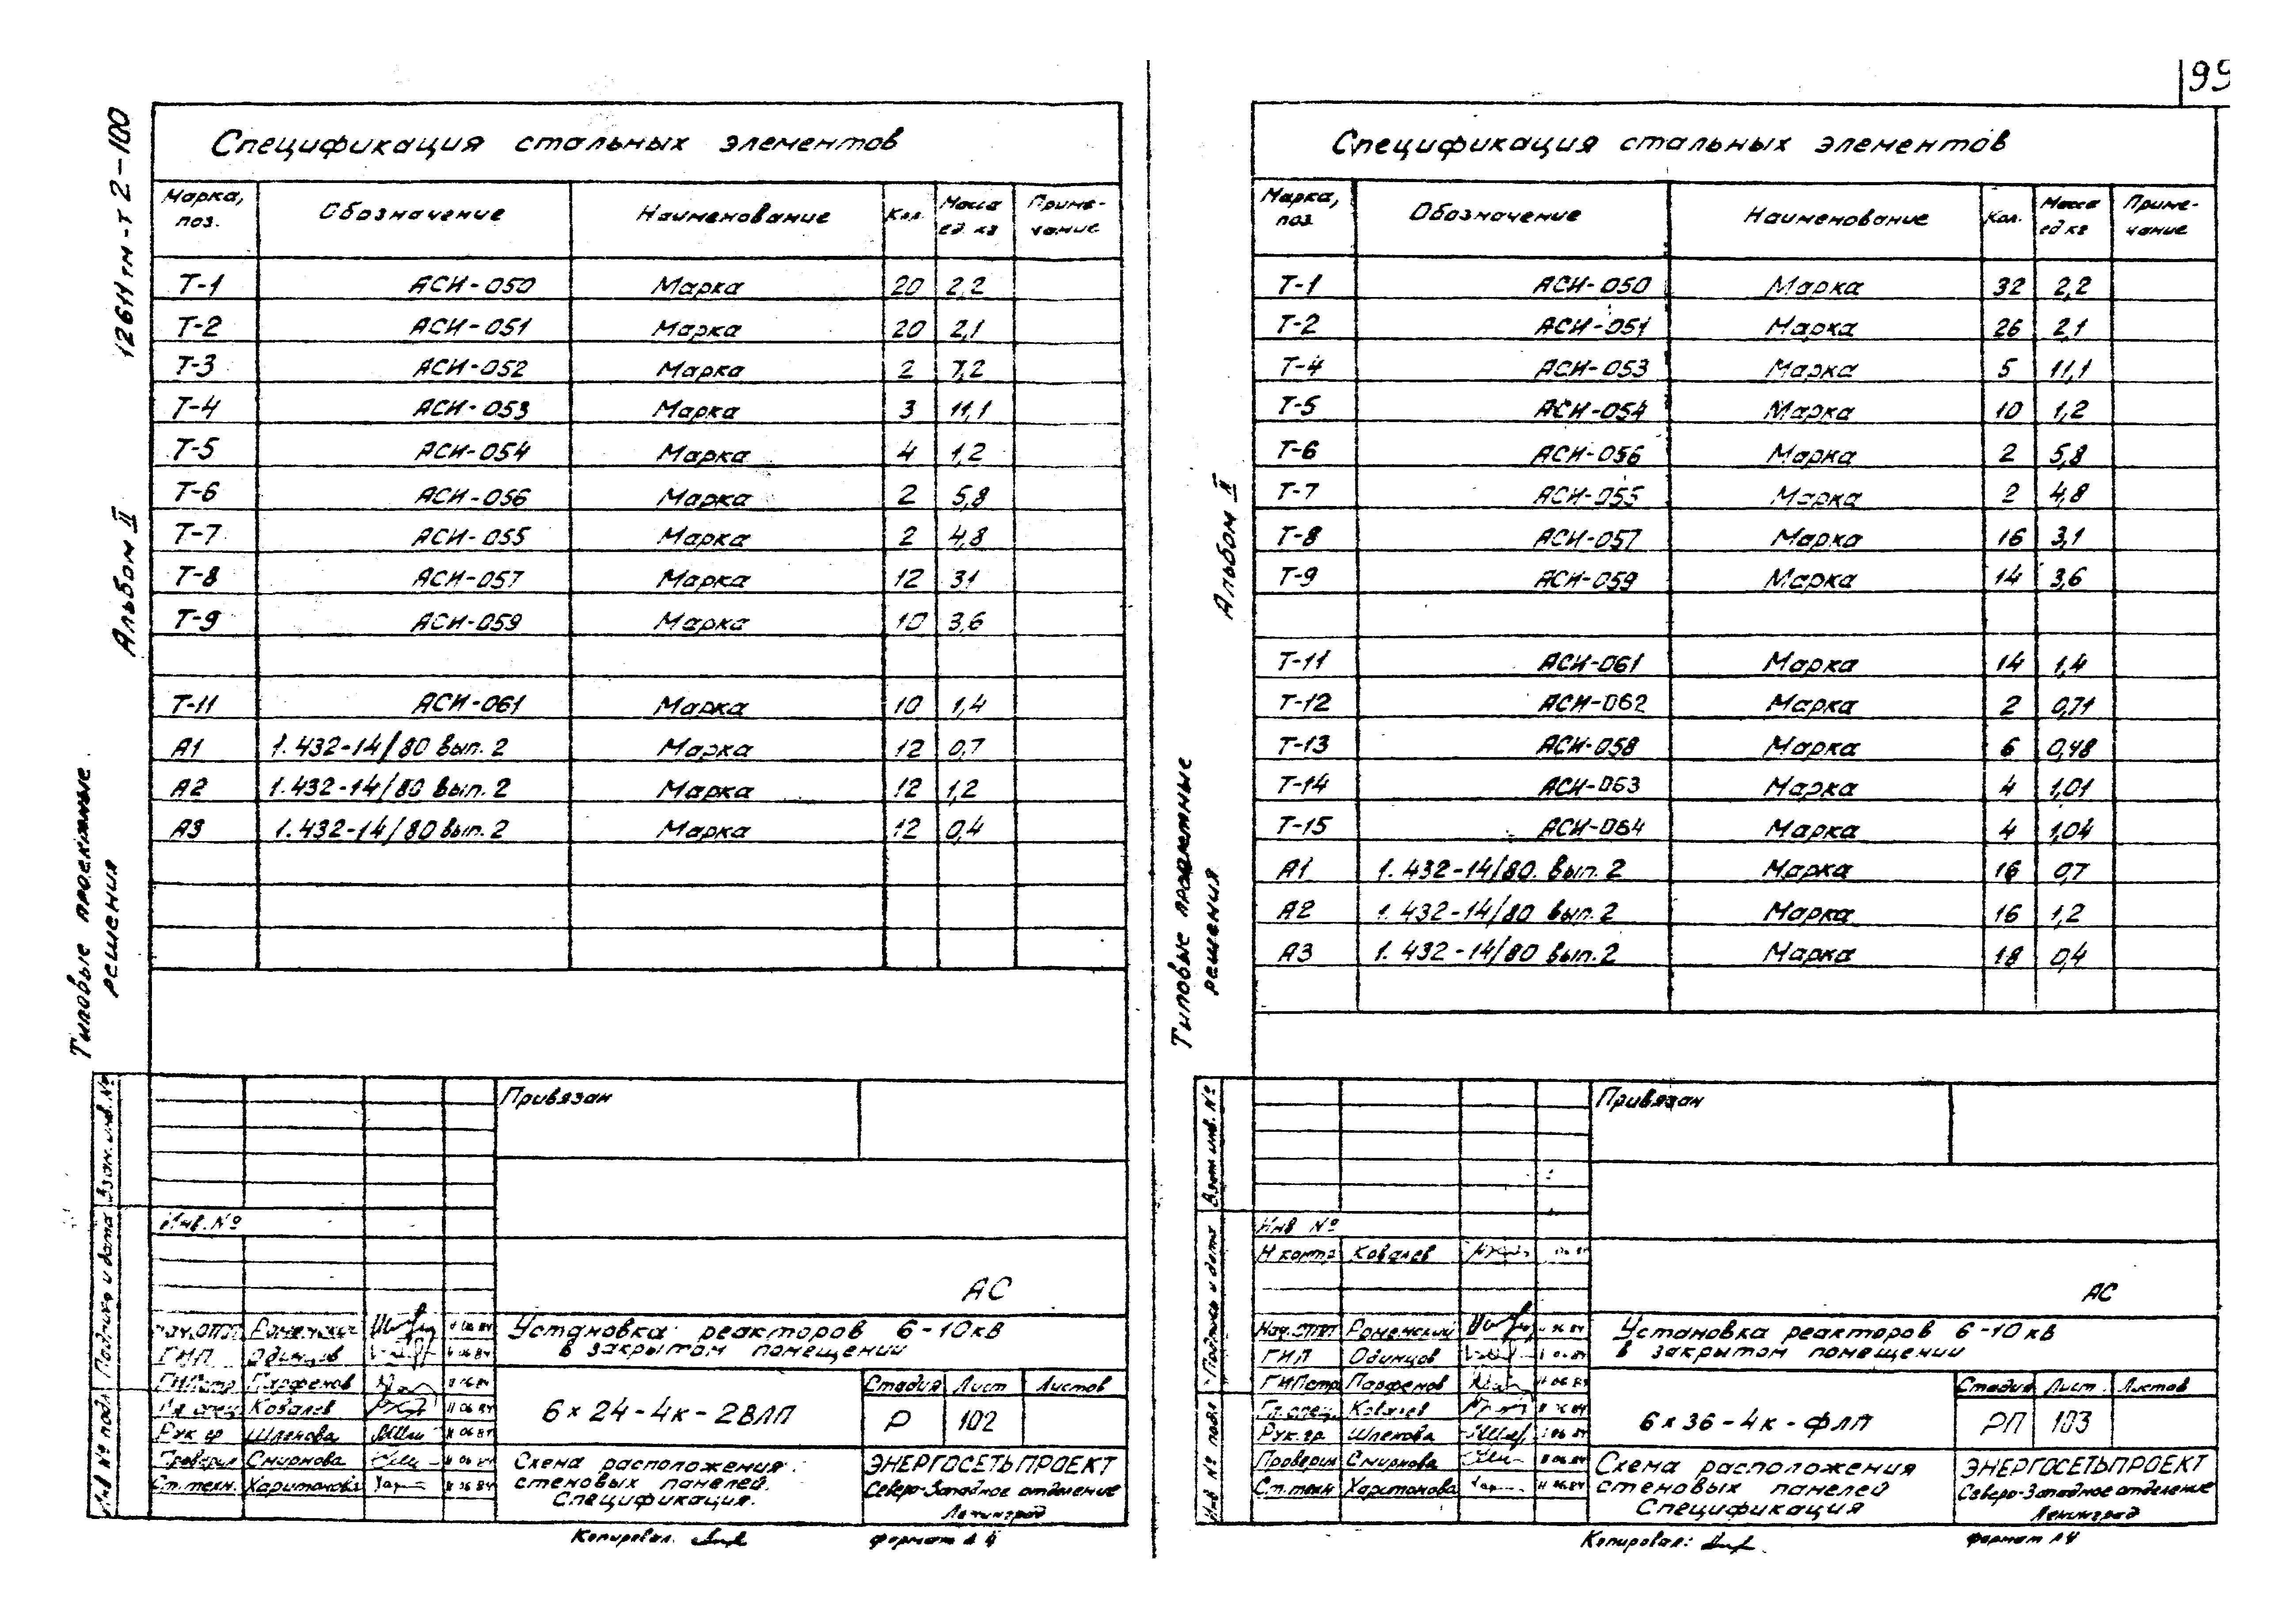 99
12611тм-т2-100
Альбом II
Типовые проектные
решения
Спецификация стальных элементов
Марка, поз. Обозначение Наименование Кол. Масса ед. кг Приме-чание
Т-1 АСИ-050 Марка 20 2,2
Т-2 АСИ-051 Марка 20 2,1
Т-3 АСИ-052 Марка 2 7,2
Т-4 АСИ-053 Марка 3 11,1
Т-5 АСИ-054 Марка 4 1,2
Т-6 АСИ-056 Марка 2 5,8
Т-7 АСИ-055 Марка 2 4,8
Т-8 АСИ-057 Марка 12 31
Т-9 АСИ-059 Марка 10 3,6
Т-11 АСИ-061 Марка 10 1,4
А1 1.432-14/80 вып. 2 Марка 12 0,7
А2 1.432-14/80 вып. 2 Марка 12 1,2
А3 1.432-14/80 вып. 2 Марка 12 0,4
Привязан
Инв. №
АС
Нач.ОТП Роменский 06 84
ГИП Одинцов 06 84
ГИПстр Парфенов 06 84
Гл. спец. Ковалев 11 06 84
Рук. гр Шленова 11 06 84
Проверил Смирнова 11 06 84
Ст. техн. Харитонова 11 06 84
Установка реакторов 6-10кв
в закрытом помещении
6х24-4к-2ВЛП
Стадия Лист Листов
Р 102
Схема расположения
стеновых панелей.
Спецификация.
ЭНЕРГОСЕТЬПРОЕКТ
Северо-Западное отделение
Ленинград
Взам. инв. №
Подпись и дата
Инв № подл
Копировал.
Формат А4
Альбом II
Типовые проектные
решения
Спецификация стальных элементов
Марка, поз. Обозначение Наименование Кол. Масса ед кг Приме-чание
Т-1 АСИ-050 Марка 32 2,2
Т-2 АСИ-051 Марка 26 2,1
Т-4 АСИ-053 Марка 5 11,1
Т-5 АСИ-054 Марка 10 1,2
Т-6 АСИ-056 Марка 2 5,8
Т-7 АСИ-055 Марка 2 4,8
Т-8 АСИ-057 Марка 16 3,1
Т-9 АСИ-059 Марка 14 3,6
Т-11 АСИ-061 Марка 14 1,4
Т-12 АСИ-062 Марка 2 0,71
Т-13 АСИ-058 Марка 6 0,48
Т-14 АСИ-063 Марка 4 1,01
Т-15 АСИ-064 Марка 4 1,04
А1 1.432-14/80. вып. 2 Марка 16 0,7
А2 1.432-14/80 вып. 2 Марка 16 1,2
А3 1.432-14/80 вып. 2 Марка 18 0,4
Привязан
Инв №
Н контр Ковалев
АС
Нач. ОТП Роменский 06 84
ГИП Одинцов
ГИПстр Парфенов 11 06 84
Гл. спец. Ковалев
Рук. гр. Шленова 06 84
Проверил Смирнова 11 06 84
Ст. техн Харитонова 11 06 84
Установка реакторов 6-10кв
в закрытом помещении
6х36-4к-ФЛП
Стадия Лист Листов
РП 103
Схема расположения
стеновых панелей
Спецификация
ЭНЕРГОСЕТЬПРОЕКТ
Северо-Западное отделение
Ленинград
Взам инв. №
Подпись и дата
Инв № подл
Копировал:
Формат А4